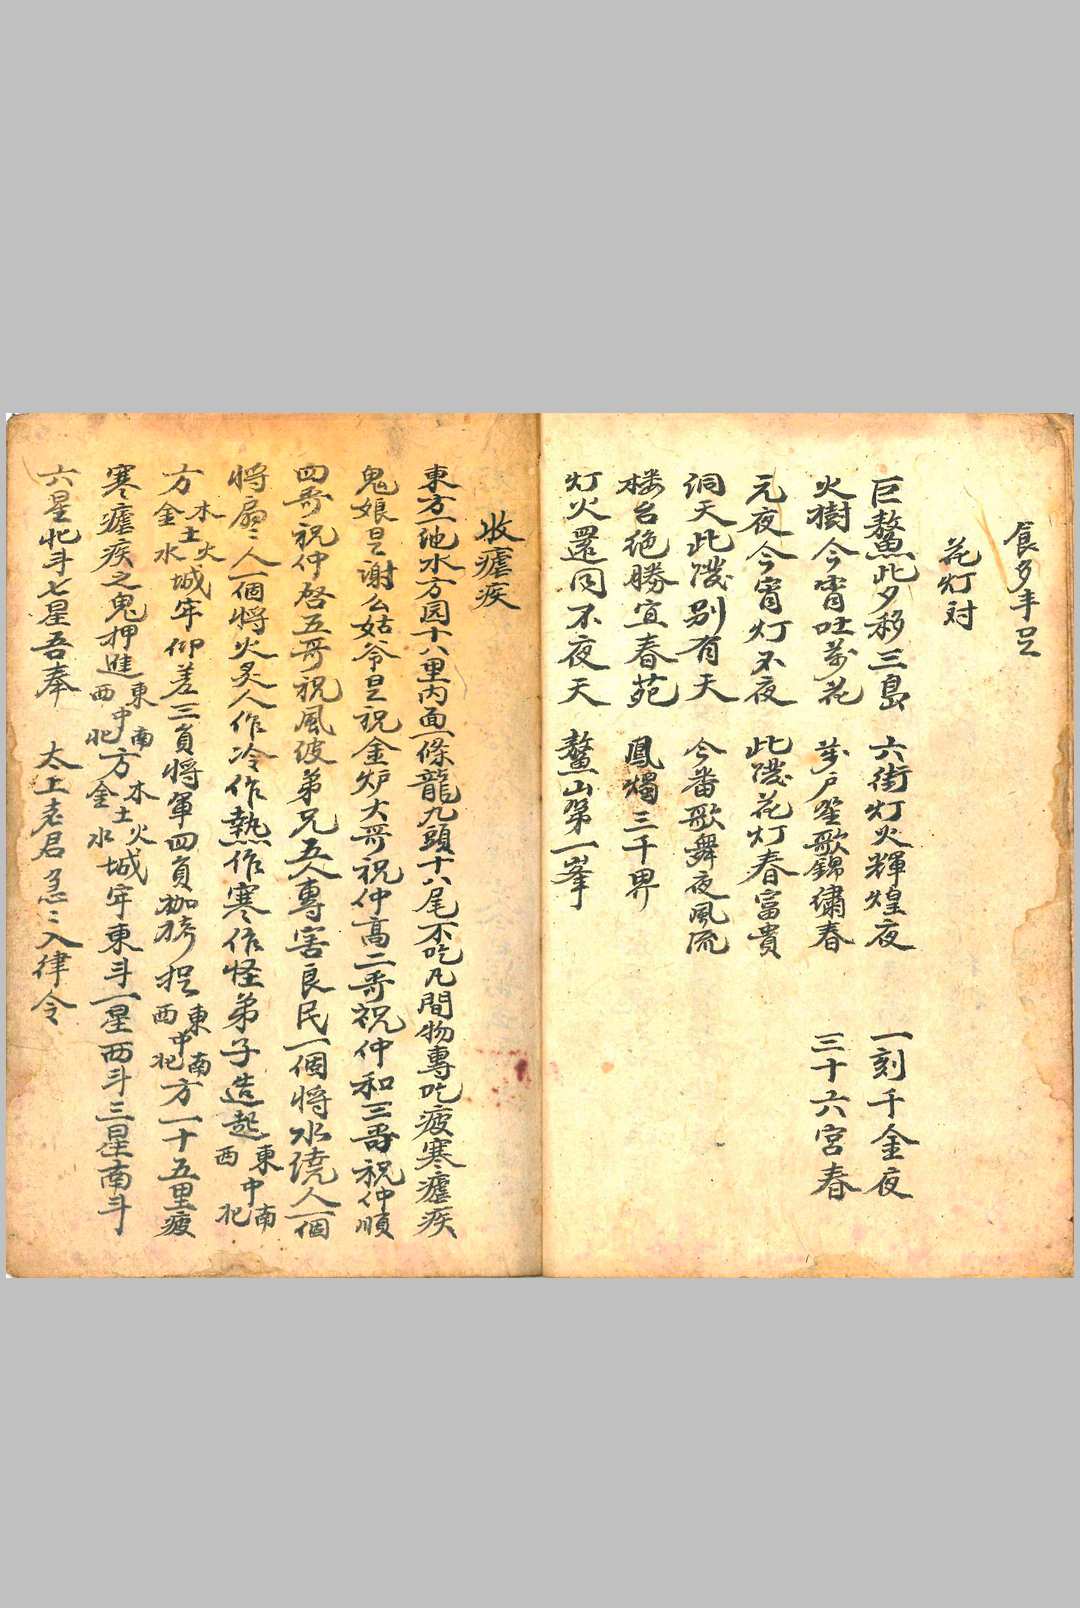 食多年呈
花灯对
巨鰲此夕移三島　六街灯火輝煌夜　一刻千金夜
火樹今宵吐萬花　萬户笙歌錦繡春　三十六宮春
元夜今宵灯不夜　此磯花灯春富貴
洞天此磯别有天　今番歌舞夜風流
楼台绝勝宜春苑　鳳燭三千界
灯火還同不夜天　鰲山第一峯
收瘧疾
東方一池水方园十八里内面一條龍九頭十八尾不吃凡間物專吃疲寒瘧疾
鬼娘是謝么姑爷是祝金炉大哥祝仲高二哥祝仲和三哥祝仲順
四哥祝仲啓五哥祝風波弟兄五人專害良民一個將水澆人一個
將扇扇人一個將火炙人作冷作熱作寒作怪弟子造起東西中南北
方木金土火水城牢仰差三員將軍四員枷 捉東西中南北方一十五里疲
寒瘧疾之鬼押進東西中南北方木金土火水城牢東斗一星西斗三星南斗
六星北斗七星吾奉　太上老君急〻入律令